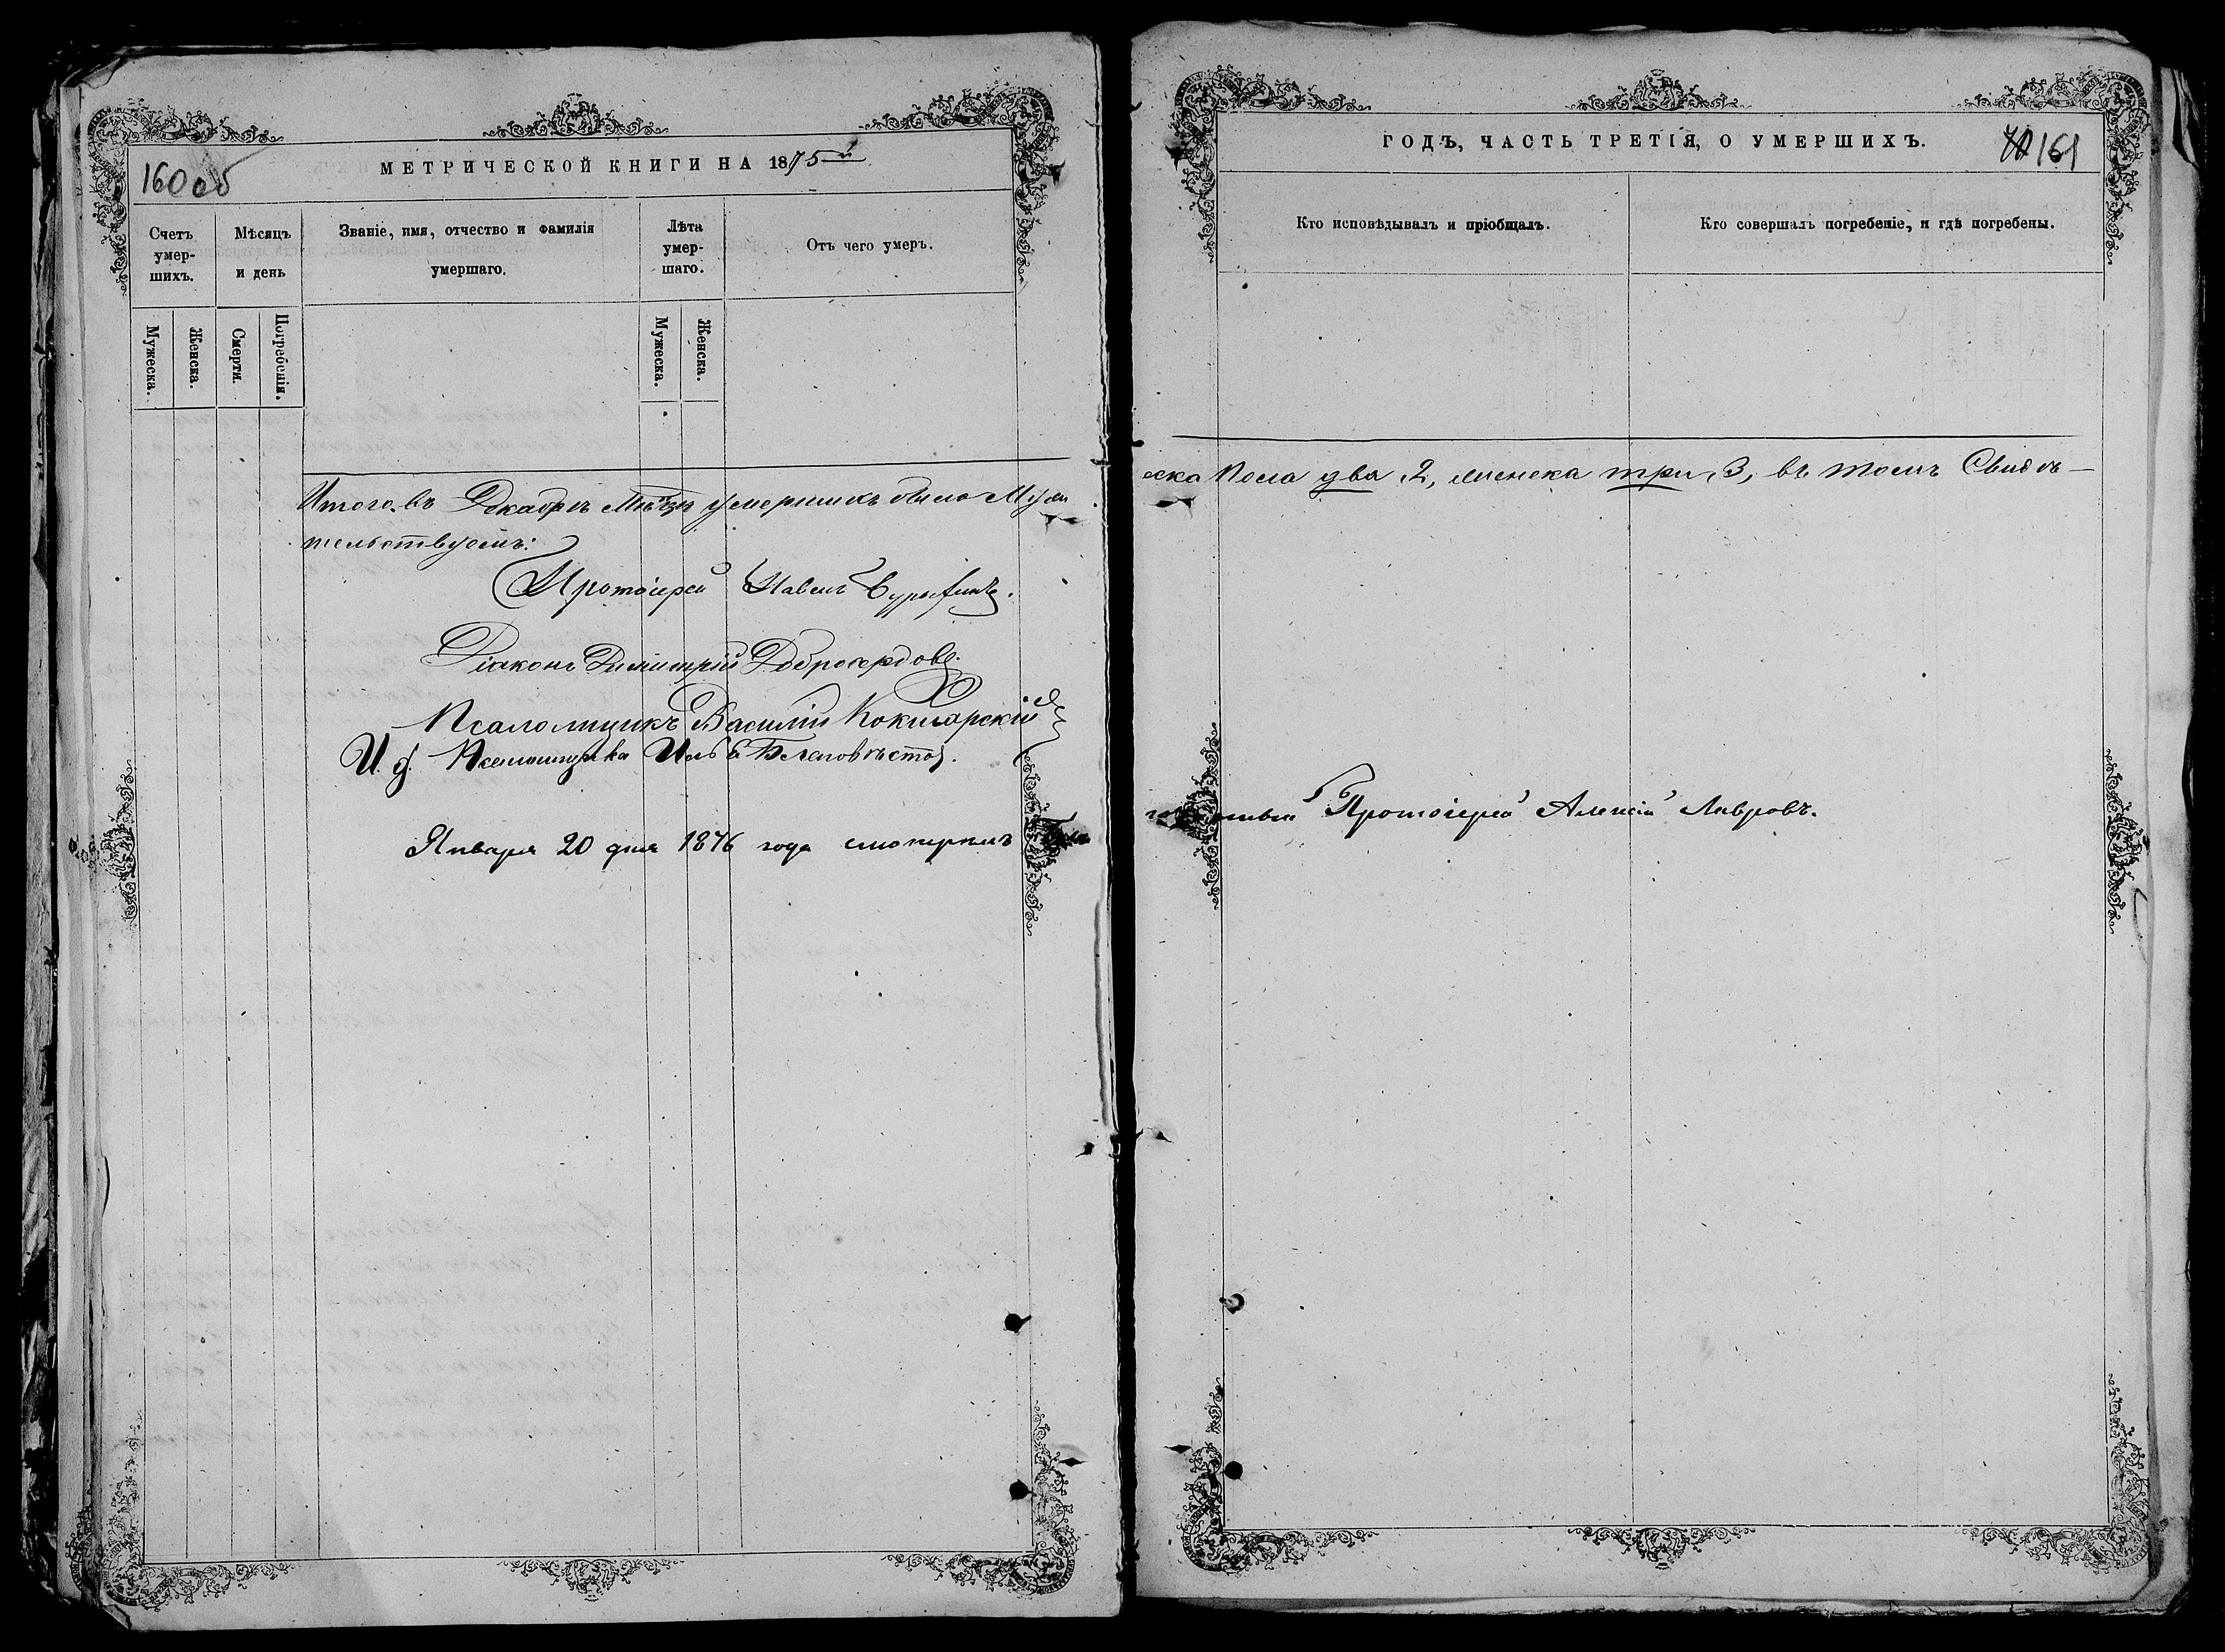 160 об
МЕТРИЧЕСКОЙ КНИГИ НА 1875й
Счетъ умер-шихъ.
Мѣсяцъ и день
Званіе, имя, отчество и фамилія умершаго.
Лѣта умер-шаго.
Отъ чего умеръ.
Мужеска.
Женска.
Смерти.
Погребенія.
Мужеска.
Женска.
Итого въ Декабрѣ мѣсяцѣ умершихъ было Муж
тельствуемъ:
Протоіерей Павелъ
Діаконъ Димитрій Добросердовъ.
Псаломщикъ Василій Кокшарскій
И. д. Псаломщика Илья Благовѣстов.
Января 20 дня 1876 года смотрѣлъ
ГОДЪ, ЧАСТЬ ТРЕТІЯ, О УМЕРШИХЪ.
161
Кто исповѣдывалъ и пріобщалъ.
Кто совершалъ погребеніе, и гдѣ погребены.
еска пола два, 2, женска три, 3, въ томъ Свидѣ—
Протоіерей Алексій Лавровъ.